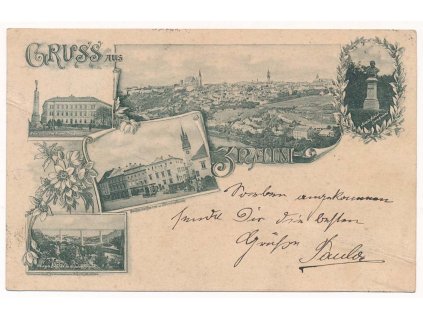 GRUSS AUS
ZNAIM
Soeben angekommen
sende Dir die besten
Grüße
Paula